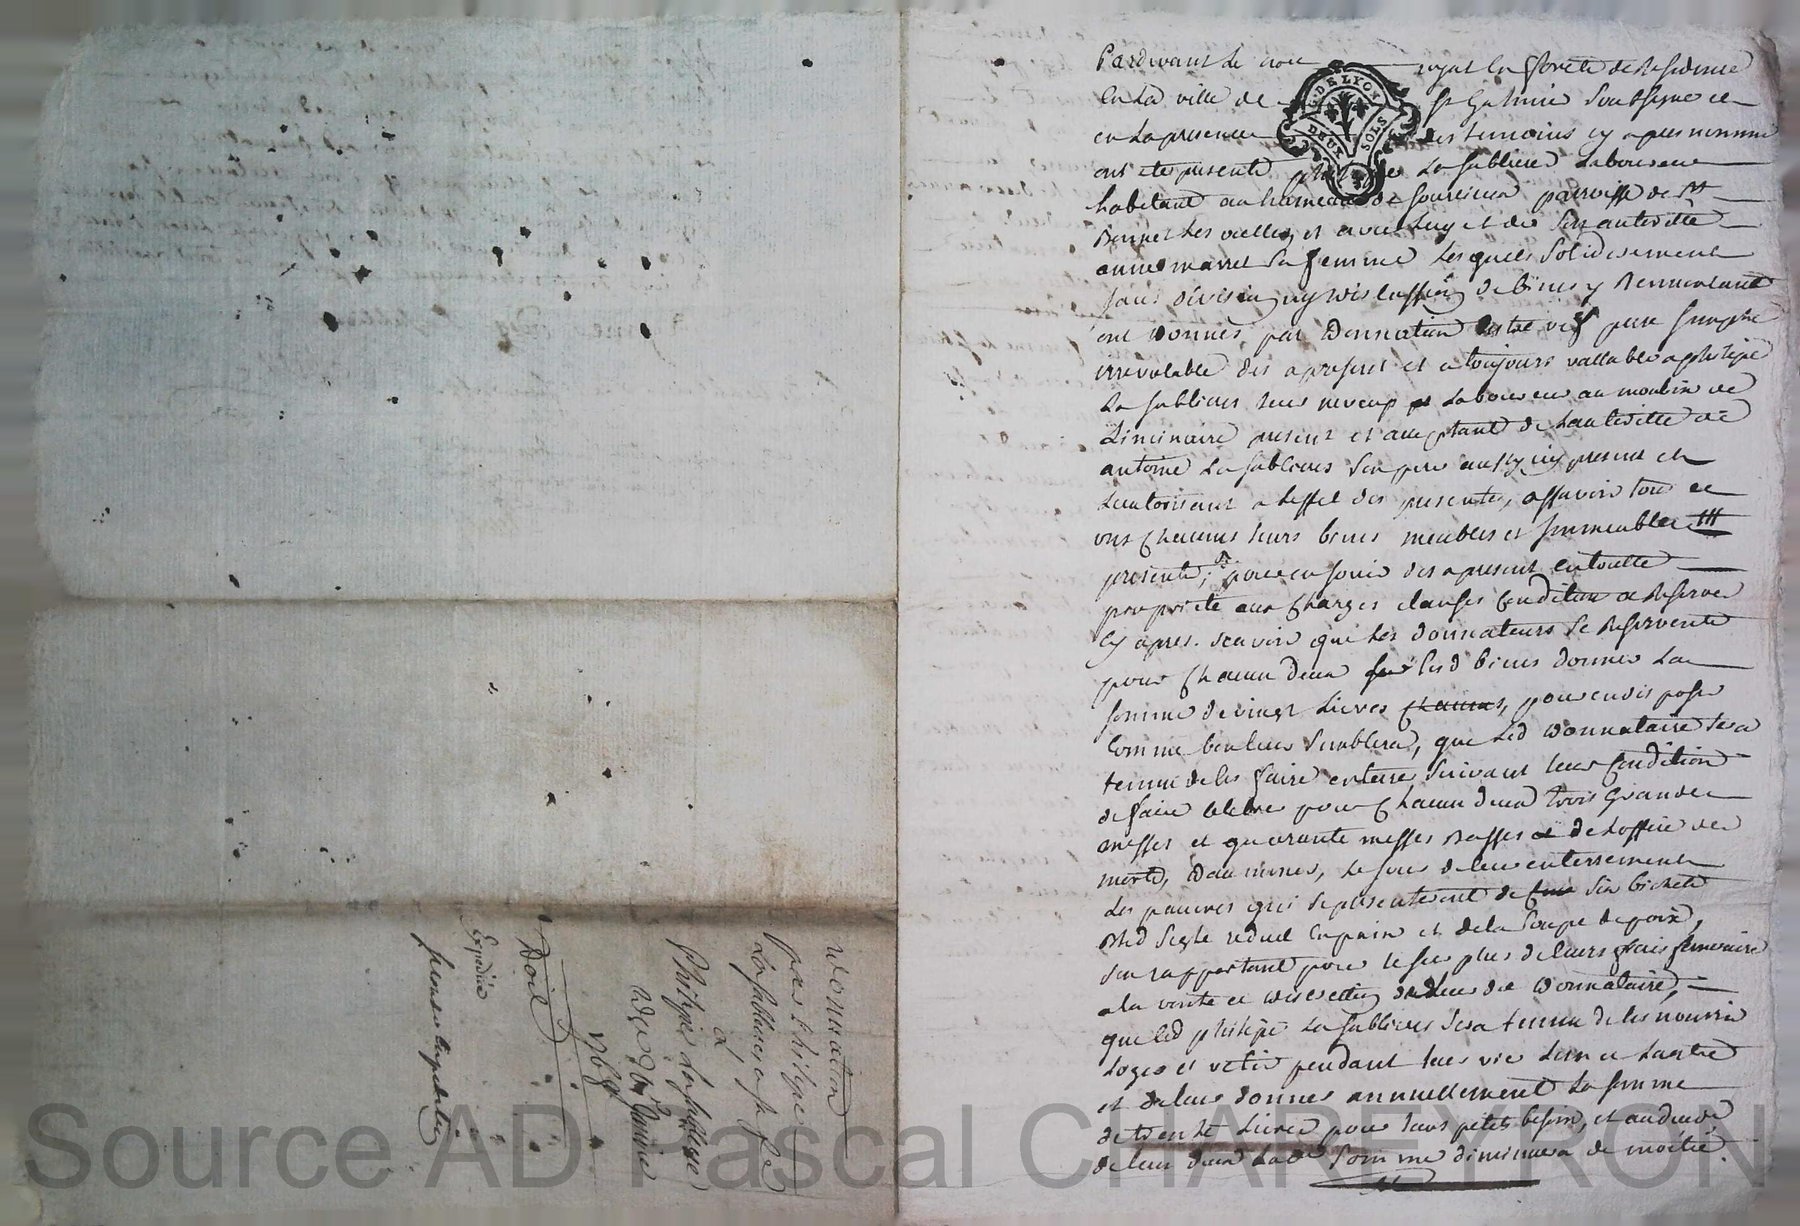 Pardevant le notaire royal en forets de Residence
en la ville de St Galmier Soubsigne et
en la presence des temoins cy apres nommé
ont ete presents La Sabliere Laboureur
habitant au hameau de parroisse de St
Bonnet Les oielles, et avec Luy et de Son autoritté
anne marret Sa femme Lesquels Solidairement
Sans division ny discussion de biens y Renoncant
ont donnés, par Donnation entre vifs pure Simple
irrevocable des apresent et a toujours vallable a philipe
La Sablieres leur neveu Laboureur au moulin de
present et acceptant de Lautoritte de
antoine La Sablieres Son pere aussy icy present et
Lautorisant a Leffet des presentes, assavoir tous et
uns Chacuns leurs biens meubles et Jmmeubles
presents, pour en Jouir des apresent en toutte
proprieté aux Charges clauses Condition et Reserves
cy apres. scavoir que Les donnateurs Se Reservent
pour Chacun deux sur lesd biens donnes La
Somme de vingt Livres chacuns, pour en disposer
Comme bon leur Semblera, que Led Donnataire Sera
tenu de les faire enterrer Suivant leur Condition
de faire celebrer pour Chacun deux trois Grandes
messes et quarante messes Basses de Loffice des
morts, Daumoner, Le jour de leur enterrement
Les pauvres qui Se presenteront de Six bichets
Bled Segle reduit en pain et de la Soupe de poix,
Sen rapportant pour le Surplus de leurs frais funeraire
a la vonté et discretion dudit Donnataire,
que led philipe La Sablieres Sera tenu de les nourrir
Loger et vetir pendant leur vie Lun et Lautre
et de leur donner annuellement La Somme
de trente Livres pour leurs petits besoins, et au deces
de lun deux Lade Somme diminuera de moitié.
Donnation
par Philipe
La Sabliere et Sa fe
a
Philipe La Sabliere
Du 9bre
Doit
Expediée
G. DE LYON
DEUX SOLS
Source AD Pascal CHAREYRON